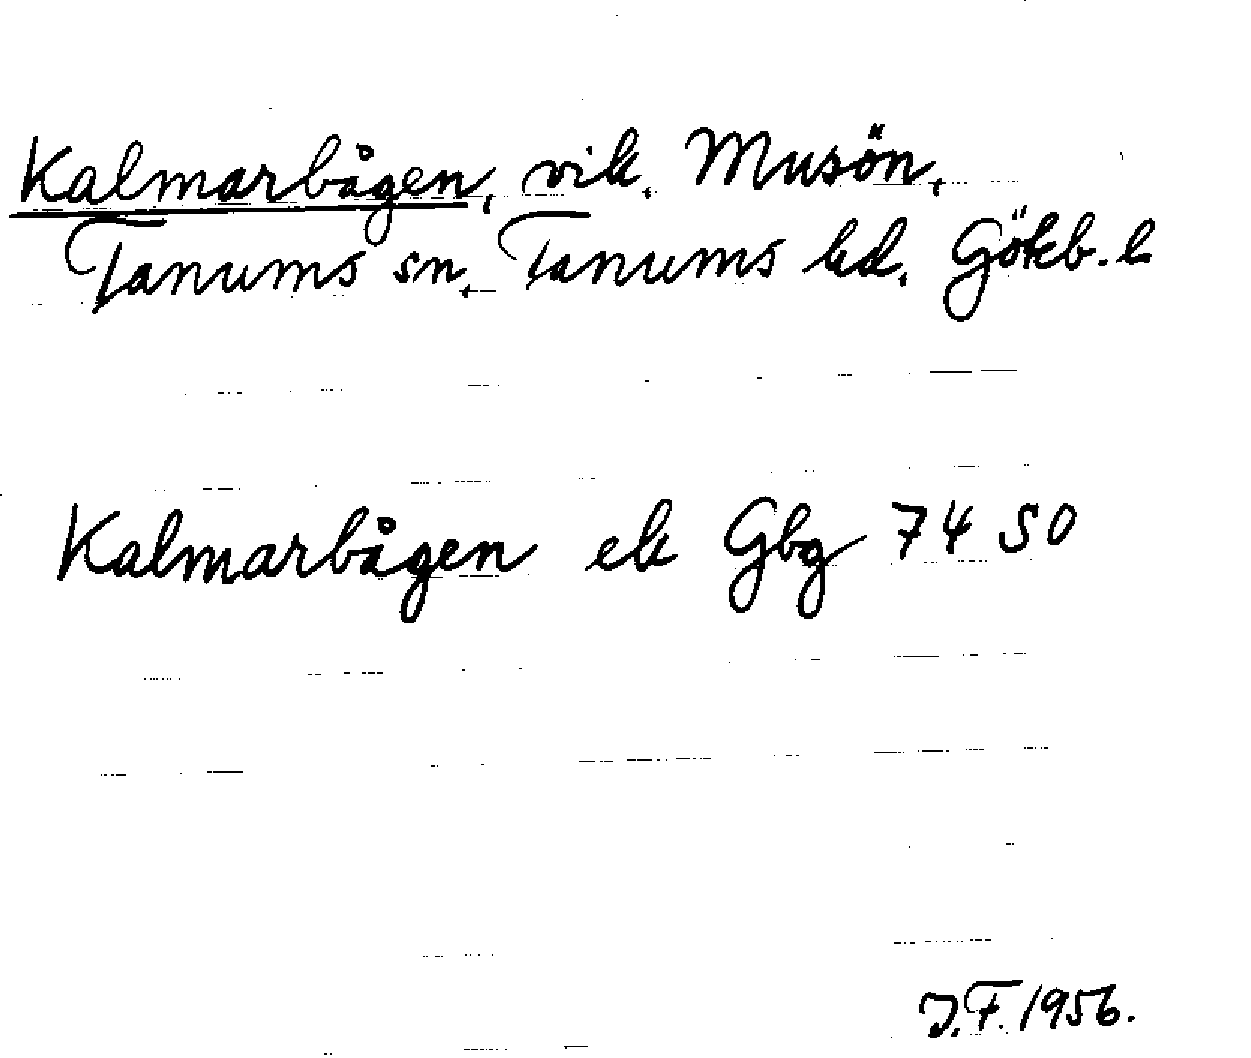 Kalmarbågen, vik, Musön,
Tanums sn, Tanums hd, Gökb. l
Kalmarbågen ek Gbg 74 50
J.F. 1956.